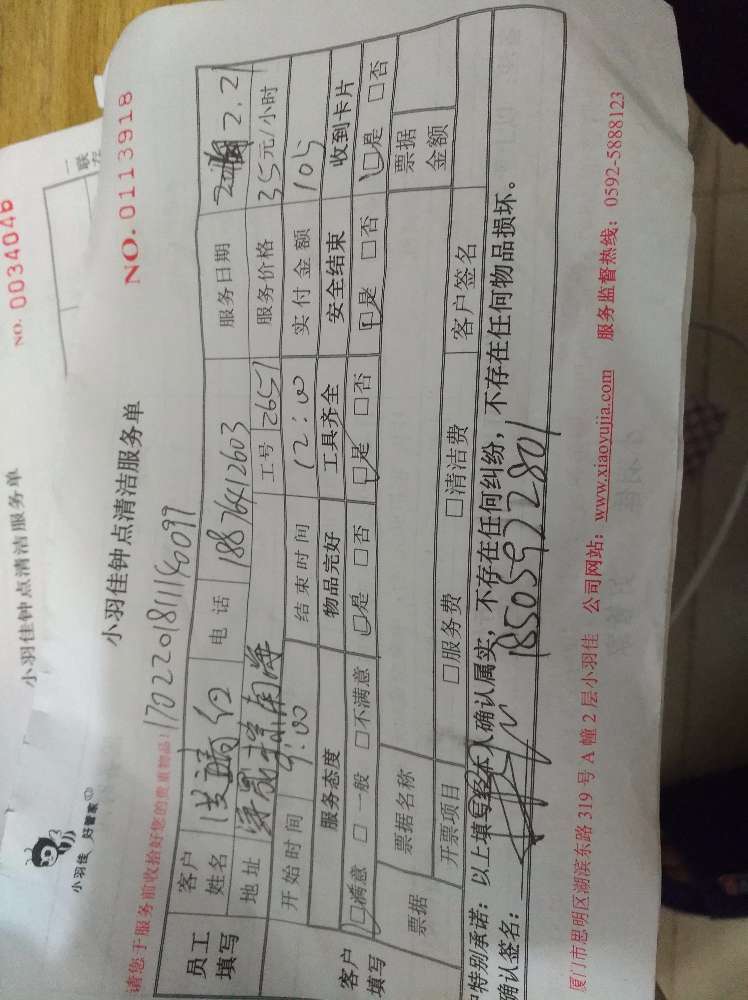 NO. 0034046
小羽佳钟点清洁服务单
二联
小羽佳 好管家
小羽佳钟点清洁服务单
NO. 0113918
请您于服务前收拾好您的贵重物品!
1702201811140099
员工填写
客户姓名
红
电话
18876412603
服务日期
2.21
地址
工号
2651
服务价格
35元/小时
开始时间
9:00
结束时间
12:00
实付金额
105
客户填写
服务态度
物品完好
工具齐全
安全结束
收到卡片
☑满意 □一般 □不满意
☑是 □否
☑是 □否
☑是 □否
☑是 □否
票据
票据名称
票据金额
开票项目
□服务费 □清洁费
客户签名
户特别承诺:以上填写经本人确认属实,不存在任何纠纷,不存在任何物品损坏。
确认签名:
18505972280
厦门市思明区湖滨东路 319 号 A 幢 2 层小羽佳 公司网站:www.xiaoyujia.com 服务监督热线:0592-5888123